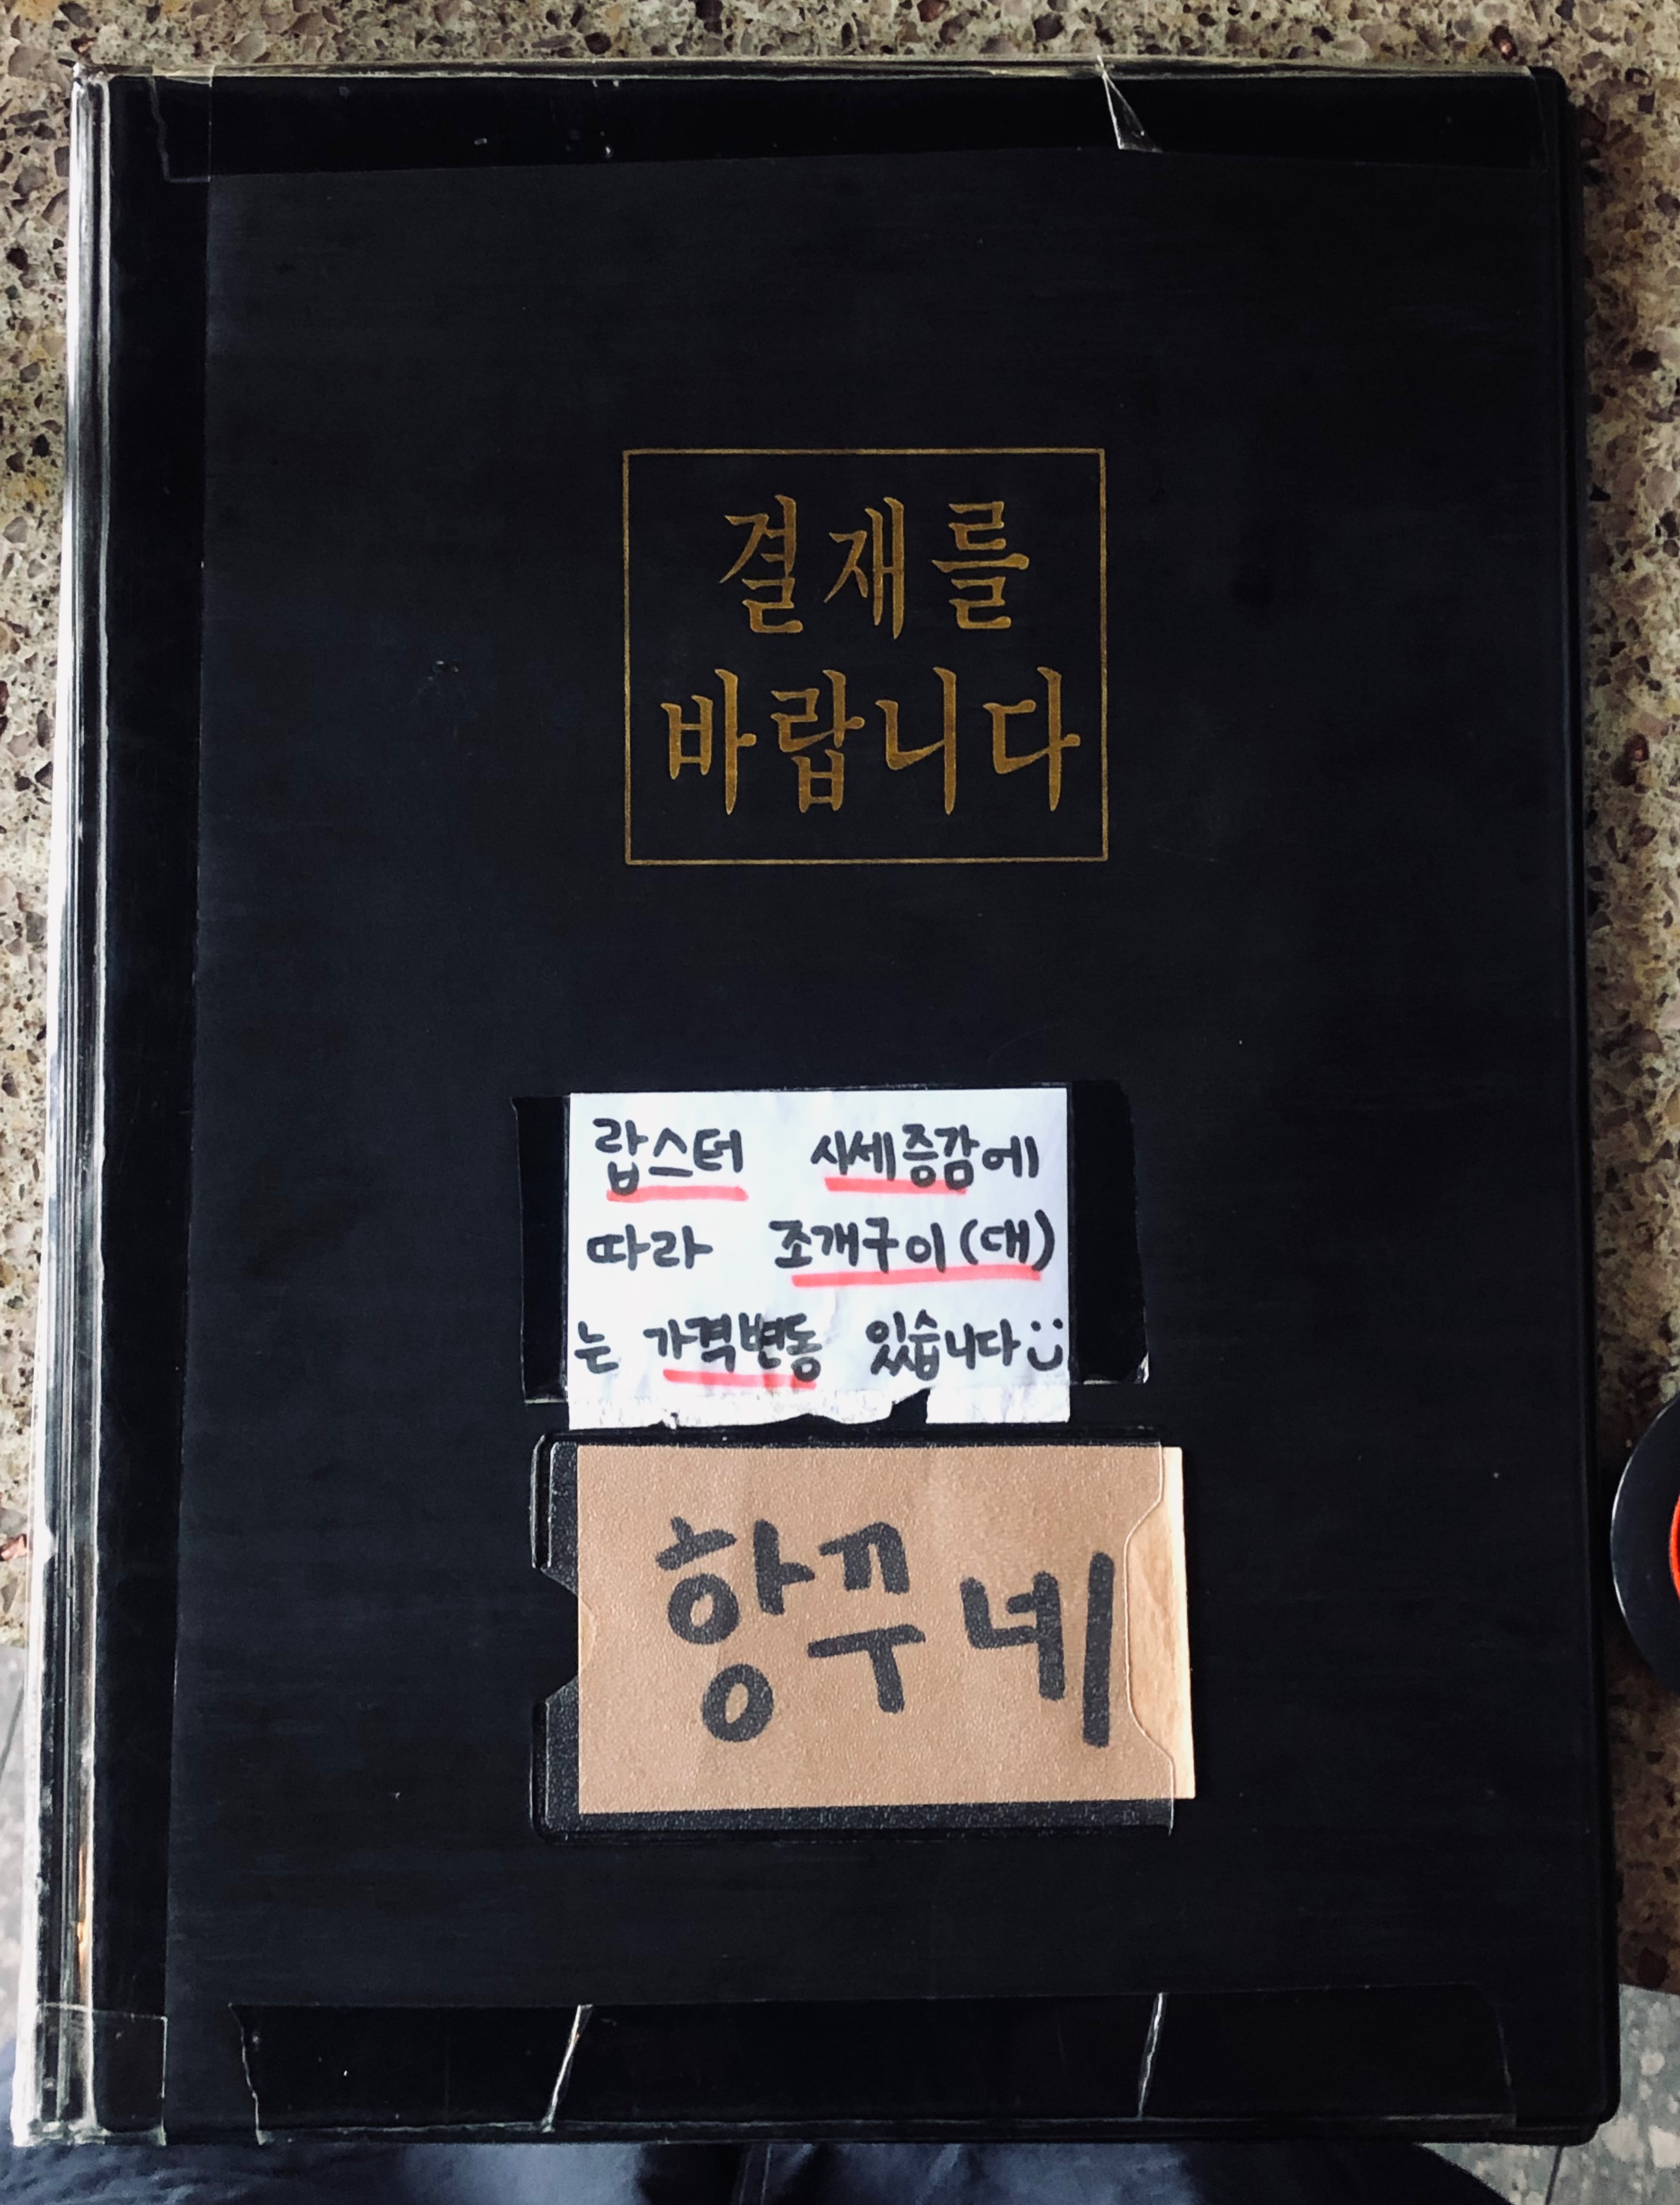 결재를
바랍니다
랍스터 시세증감에
따라 조개구이(대)
는 가격변동 있습니다
항꾸네